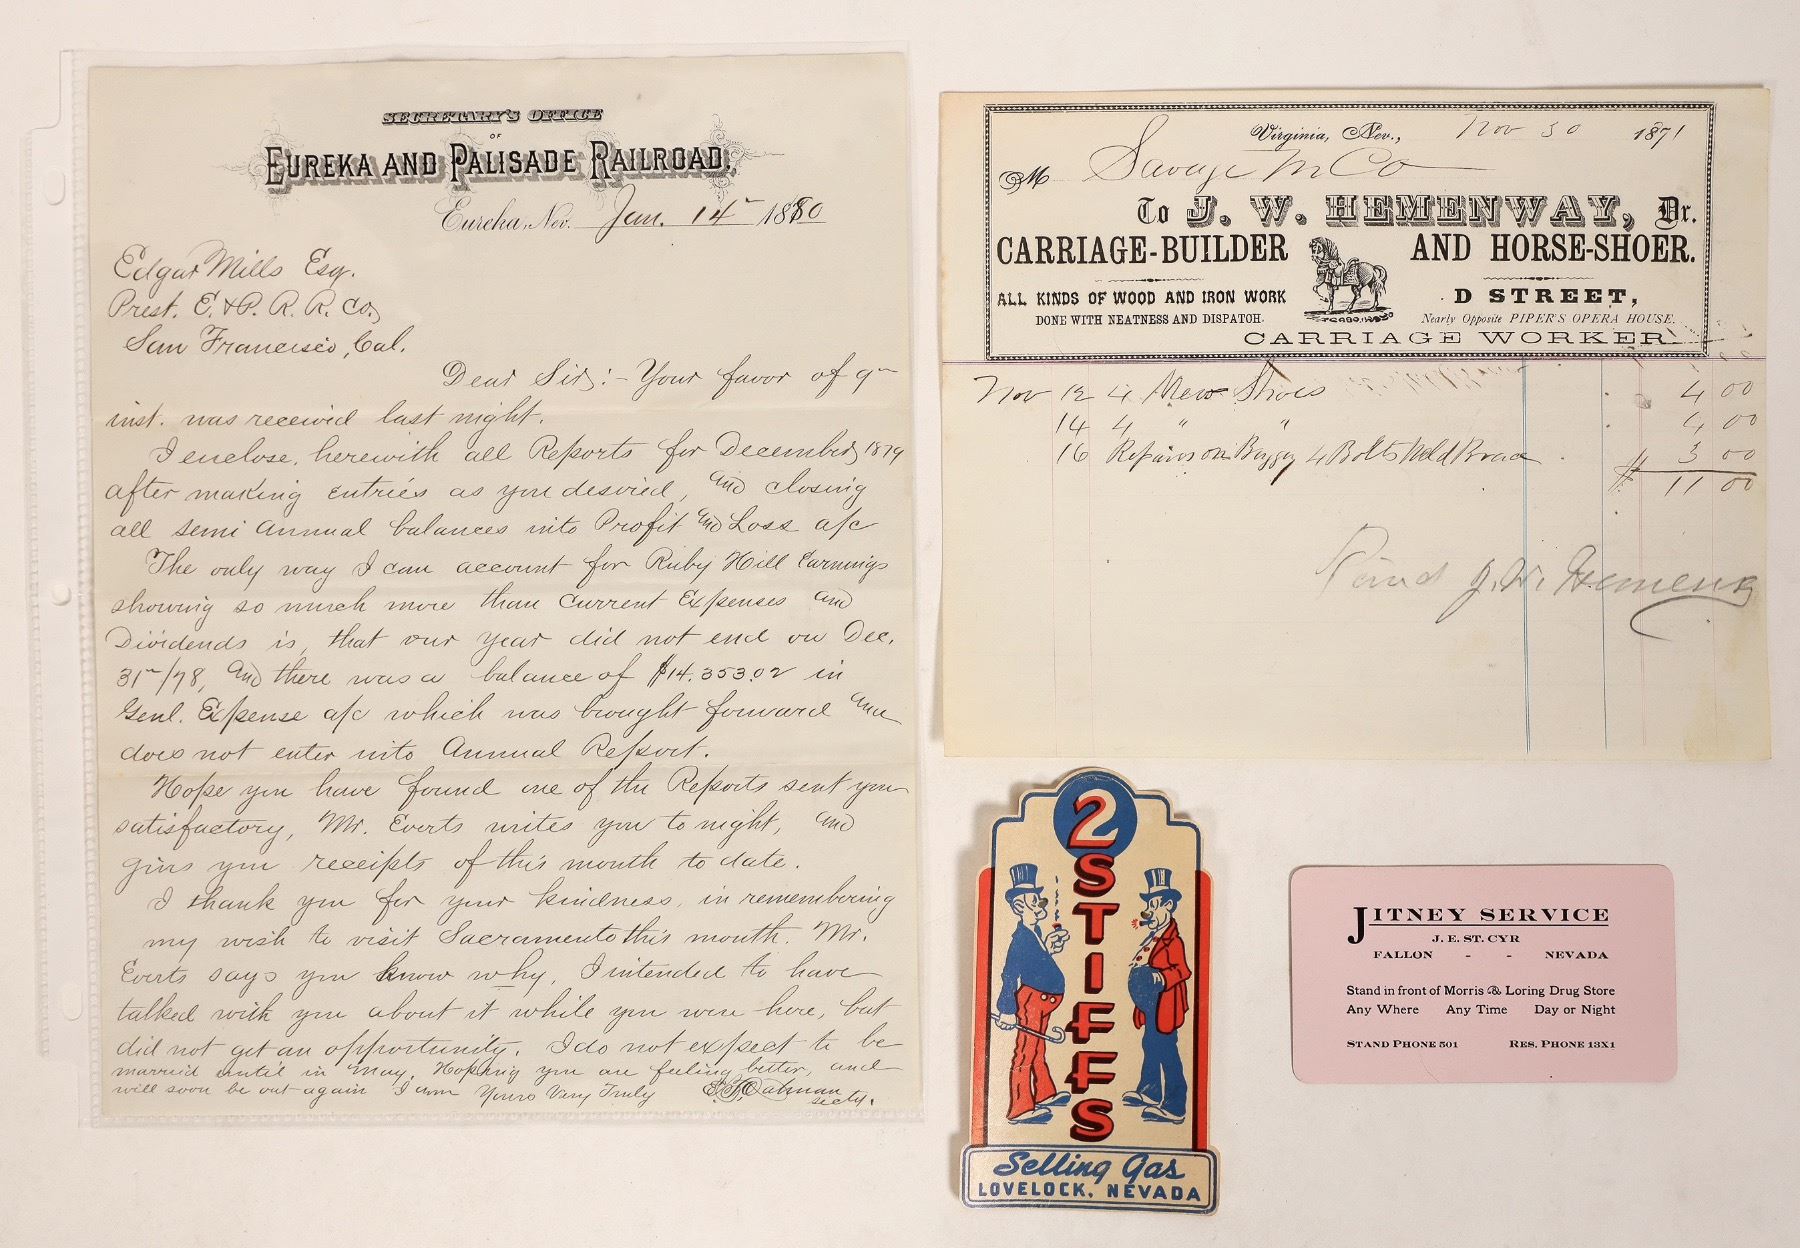 SECRETARY'S OFFICE
OF
EUREKA AND PALISADE RAILROAD.
Eureka, Nov. Jan. 14th 1880
Edgar Mills Esq.
Prest. E. & P. R. R. Co,
San Francisco, Cal.
Dear Sir:- Your favor of 9th
inst. was received last night.
I enclose, herewith all Reports for December, 1879
after making entries as you desired, and closing
all semi annual balances into Profit and Loss a/c
The only way I can account for Ruby Hill Earnings
showing so much more than Current Expenses and
Dividends is, that our year did not end on Dec.
31st/78, and there was a balance of $14.353.02 in
Genl. Expense a/c which was brought forward and
does not enter into Annual Report.
Hope you have found one of the Reports sent you
satisfactory, Mr. Everts writes you to night, and
gives you receipts of this month to date.
I thank you for your kindness, in remembering
my wish to visit Sacramento this month. Mr.
Everts says you know why, I intended to have
talked with you about it while you were here, but
did not get an opportunity. I do not expect to be
married until in May. Hoping you are feeling better, and
will soon be out again I am Yours Very Truly
Secty.
Virginia, Nev., Nov 30 1871
M Savage M Co
To J. W. HEMENWAY, Dr.
CARRIAGE-BUILDER AND HORSE-SHOER.
ALL KINDS OF WOOD AND IRON WORK
DONE WITH NEATNESS AND DISPATCH.
D STREET,
Nearly Opposite PIPER'S OPERA HOUSE.
CARRIAGE WORKER
Nov 12 4 New Shoes 4 00
14 4 " " 4 00
16 Repairs on Buggy 4 Bolts Weld Brace 3 00
$ 11 00
J. W. Hemenway
2
STIFFS
Selling Gas
LOVELOCK, NEVADA
JITNEY SERVICE
J. E. ST. CYR
FALLON - - NEVADA
Stand in front of Morris & Loring Drug Store
Any Where Any Time Day or Night
STAND PHONE 501 RES. PHONE 13X1